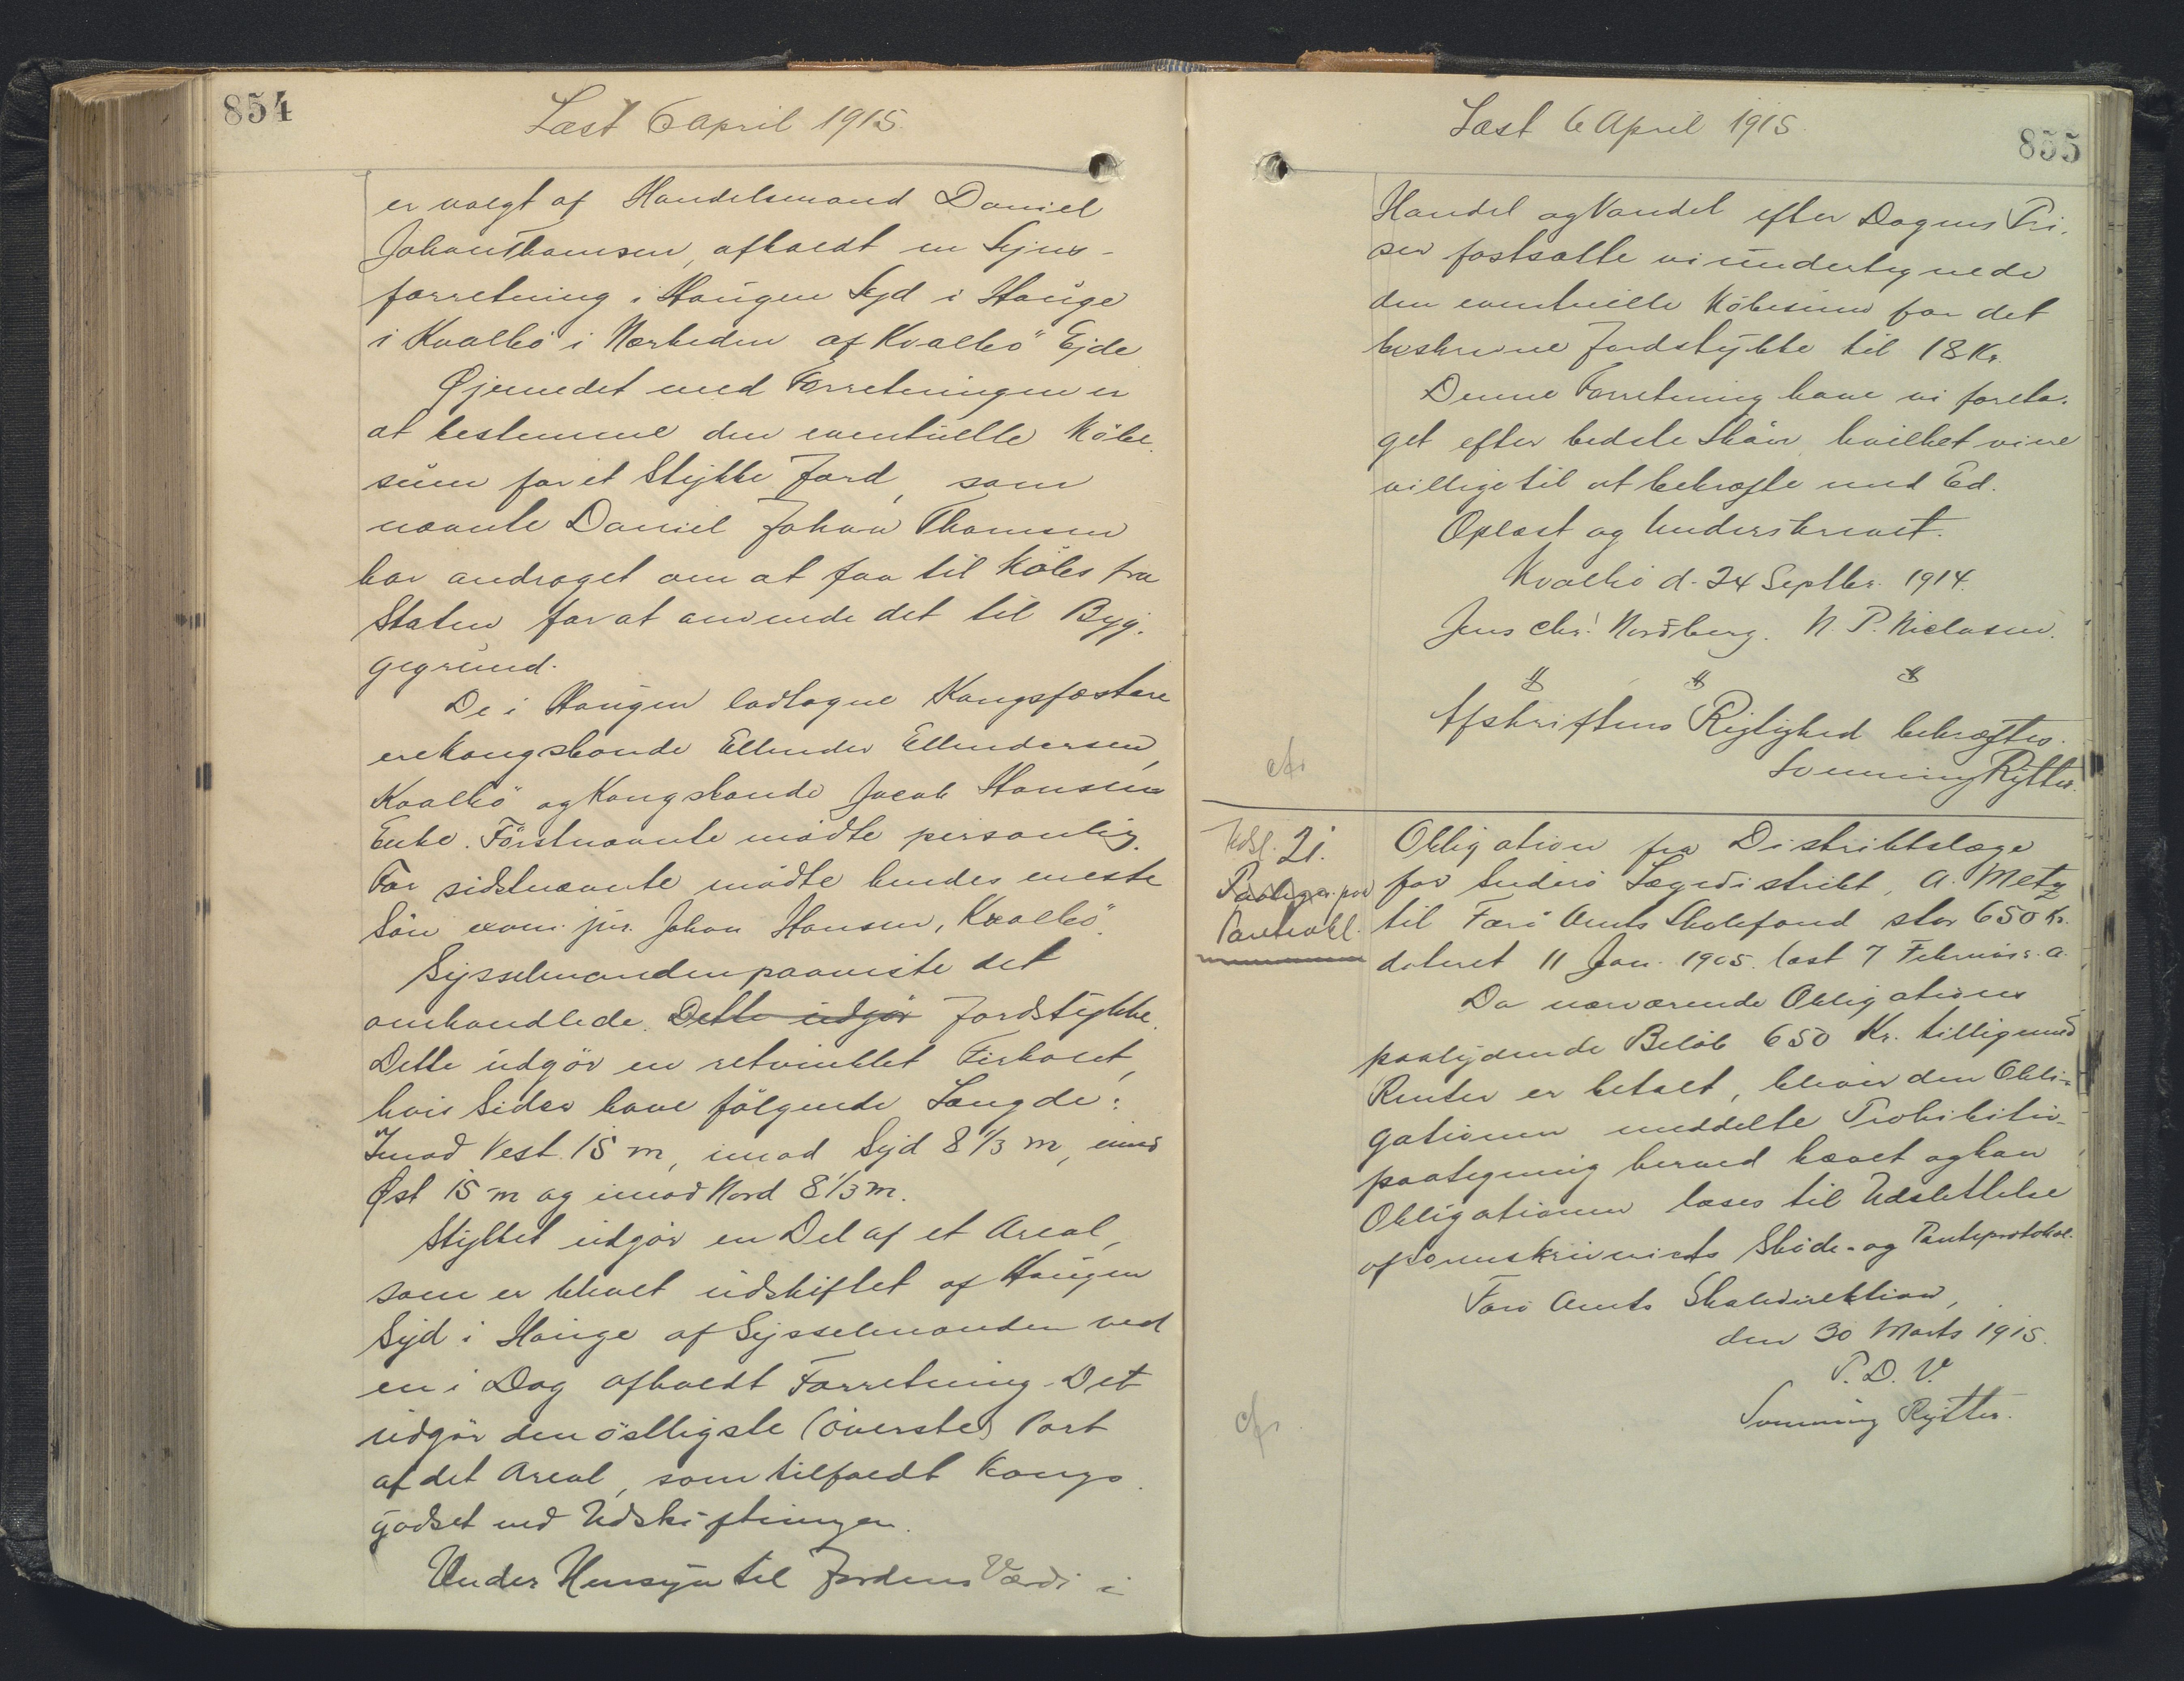 854
Læst 6 April 1915.
er valgt af Handelsmand Daniel
Johan Thomsen, afholdt en Syns-
forretning i Haugen Syd i Hauge
i Kvalbö i Nærheden af Kvalbö Ejde
Øjemedet med Forretningen er
at bestemme den eventuelle Köbe-
sum for et Stykke Jord, som
nævnte Daniel Johan Thomsen
har andraget om at faa til Köbs fra
Staten for at anvende det til Byg-
gegrund.
De i Haugen lodtagne Kongsfæstere
ere Kongsbonde Ellinder Ellendersen,
Kvalbö og Kongsbonde Jacob Hansens
Enke. Förstnævnte mödte personlig.
For sidstnævnte mödte hendes eneste
Sön exam. jur. Johan Hansen, Kvalbö.
Sysselmanden paaviste det
omhandlede. Dette udgör Jordstykke.
Dette udgör en retvinklet Firkant,
hvis Sider have fölgende Længde:
Imod Vest 15 m, imod Syd 8 1/3 m, imod
Øst 15 m og imod Nord 8 1/3 m.
Stykket udgör en Del af et Areal,
som er blevet udskiftet af Haugen
Syd i Hauge af Sysselmanden ved
en i Dag afholdt Forretning. Det
udgör den östligste (överste) Part
af det Areal, som tilfaldt Kongs-
godset ved Udskiftningen.
Under Hensyn til Jordens Værdi i
Læst 6 April 1915.
855
Handel og Vandel efter Dagens Pri-
ser fastsatte vi undertegnede
den eventuelle Köbesum for det
beskrevne Jordstykke til 18 Kr.
Denne Forretning have vi foreta-
get efter bedste Skön, hvilket vi ere
villige til at bekræfte med Ed.
Oplæst og Underskrevet.
Kvalbö d. 24 Septbr. 1914.
Jens Chr. Nordberg. N. P. Niclasen.
Afskriftens Rigtighed bekræftes.
Svenning Rytter.
cfr
Udsl. 21.
Paategn. paa
Panteobl.
Obligation fra Distriktslæge
for Suderö Lægedistrikt, A. Metz
til Færö Amts Skolefond stor 650 Kr.
dateret 11 Jan. 1905. læst 7 Februar s. a.
Da nærværende Obligations
paalydende Belöb 650 Kr. tilligemed
Renter er betalt, bliver den Obli-
gationen meddelte Prohibitiv-
paategning herved hævet og kan
Obligationen læses til Udslettelse
af Sorenskriveriets Sköde- og Panteprotokol.
Færö Amts Skoledirektion,
den 30 Marts 1915.
P. D. V.
Svenning Rytter.
cfr.